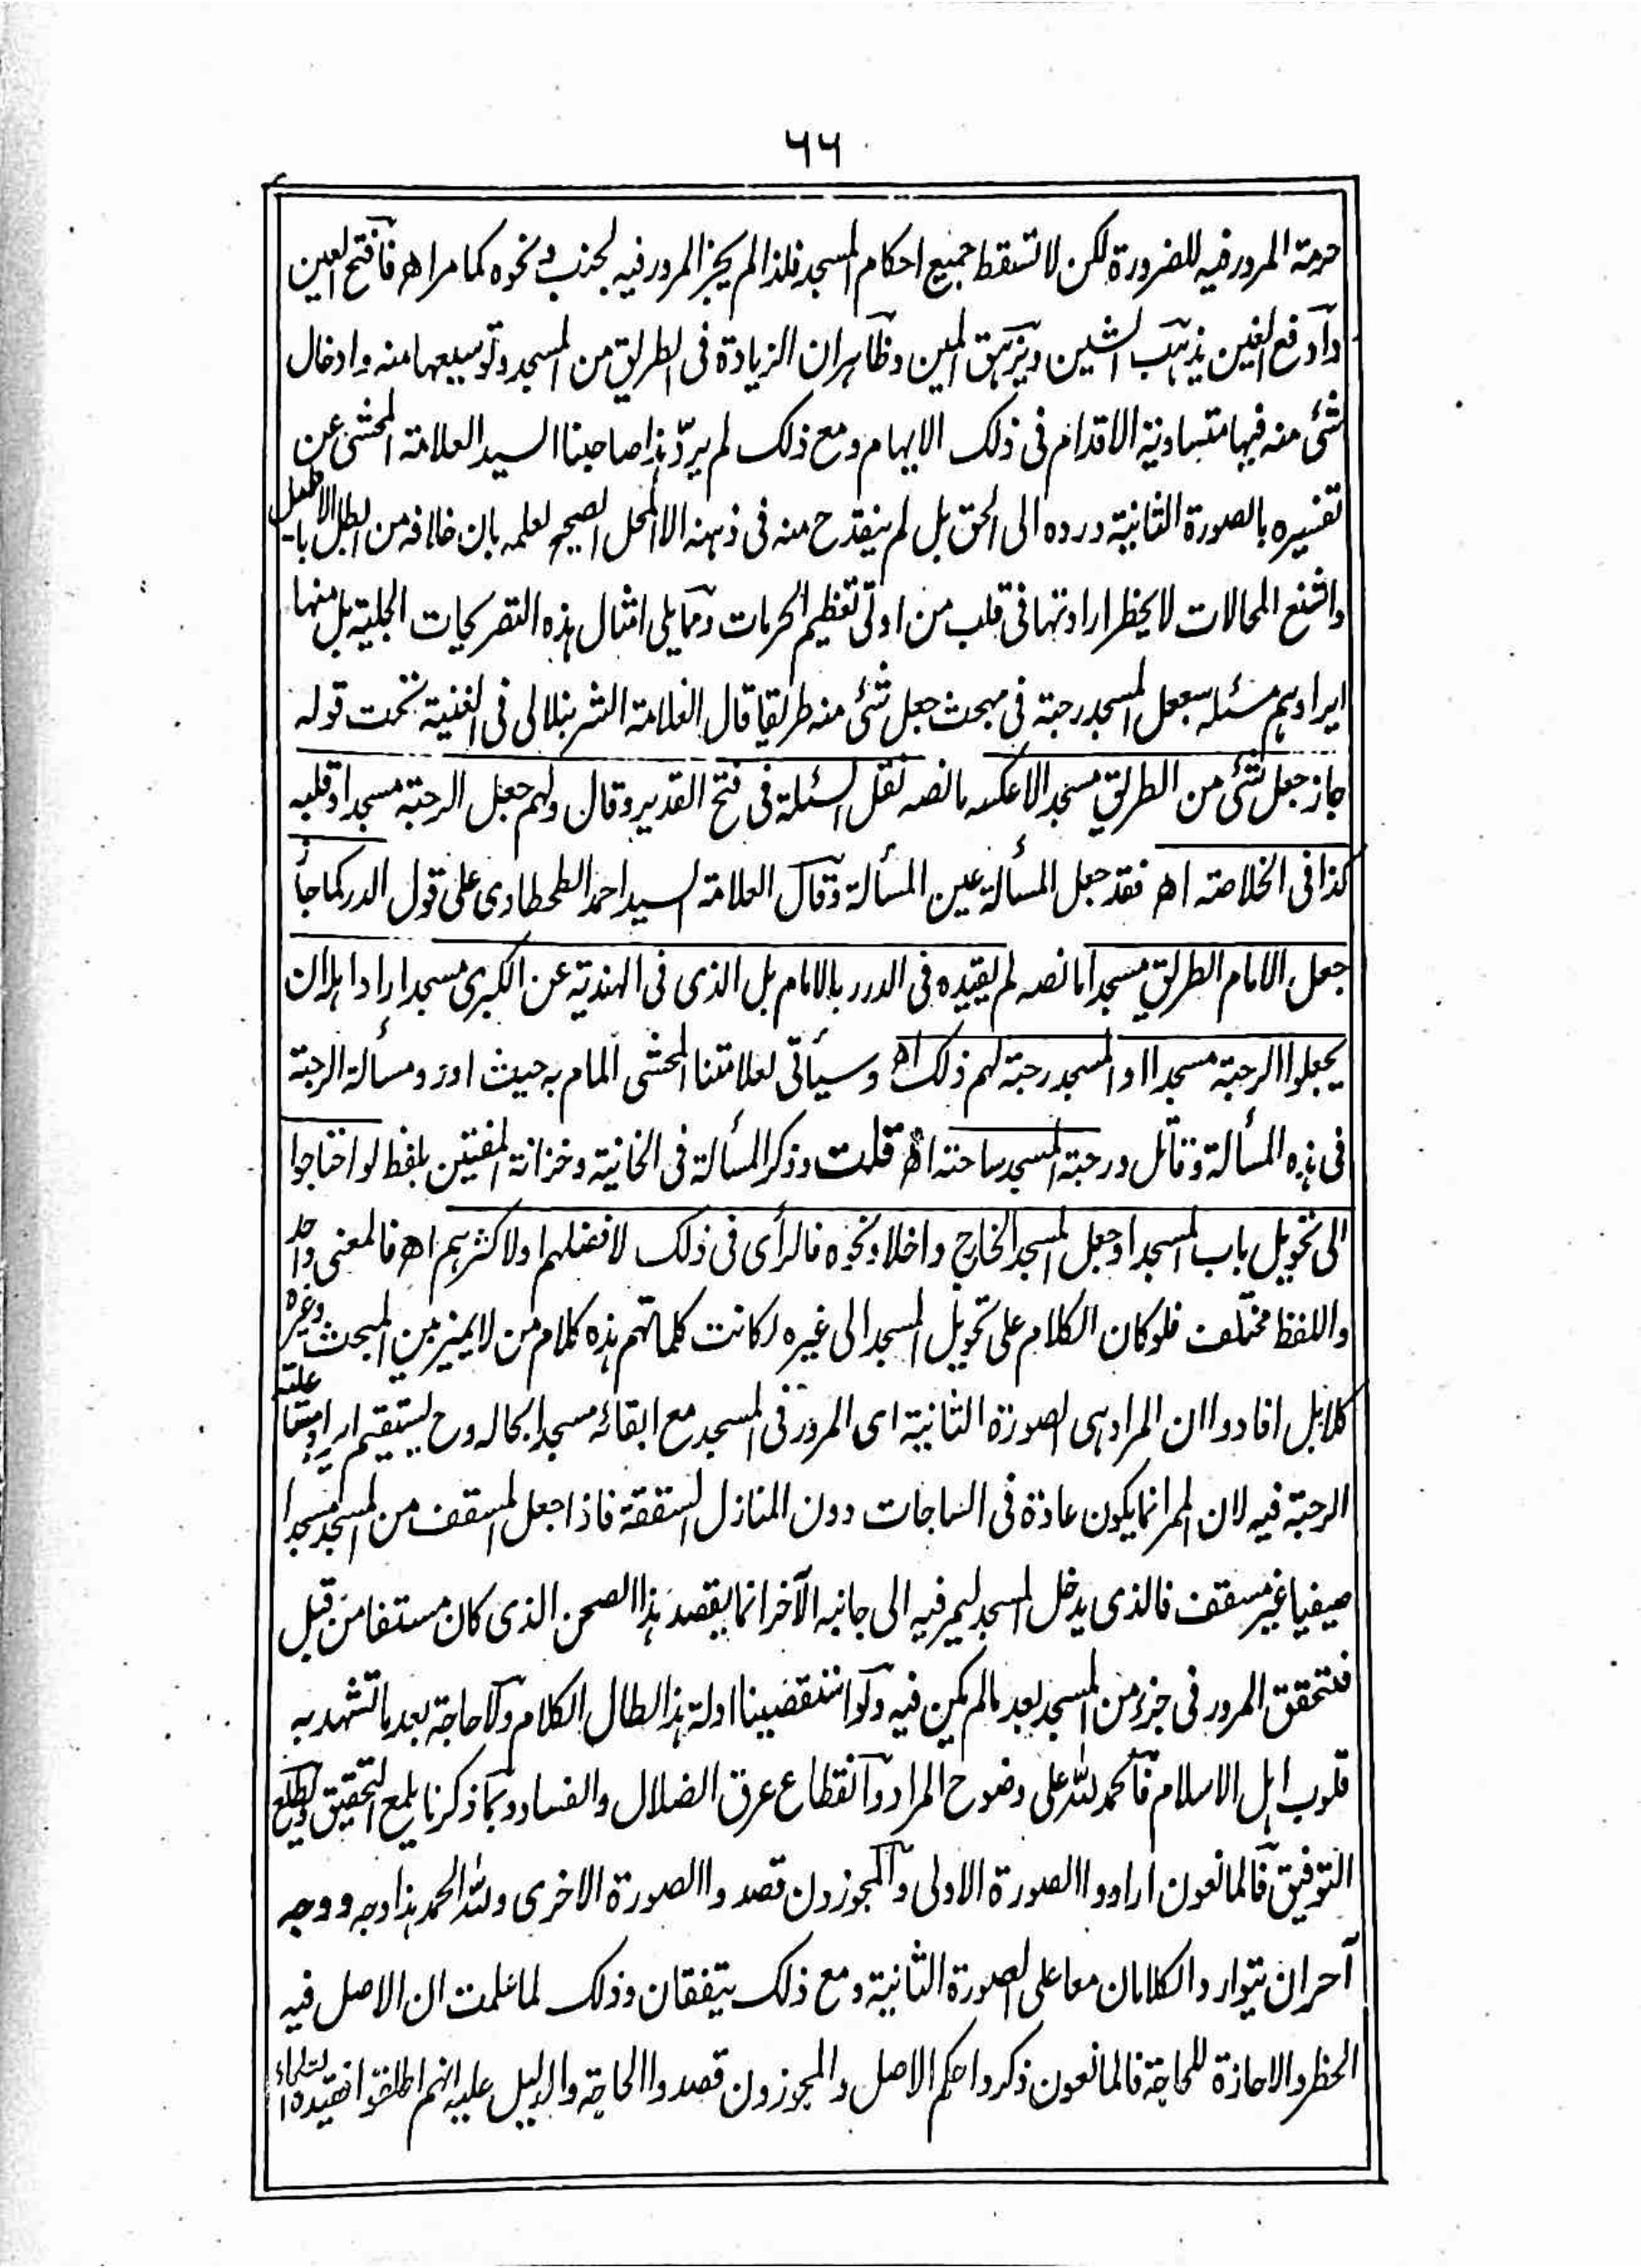 ٦٦
حرمة المرور فيه للضرورة لكن لا تسقط جميع احكام المسجد فلذا لم يجز المرور فيه لجنب ونحوه كما مر اهـ فافتح العين
وادفع الغين يذهب الشين ويزهق المين وظاهر ان الزيادة فى الطريق من المسجد وتوسيعها منه وادخال
شئ منه فيها متساوية الاقدام فى ذلك الايهام ومع ذلك لم يرد هذا صاحبنا السيد العلامة المحشى عن
تفسيره بالصورة الثانية ورده الى الحق بل لم ينقدح منه فى ذهنه الا المحل الصحيح لعلمه بان خلافه من ابطل الاباطيل
واشنع المحالات لا يخطر ارادتها فى قلب من اوتى تعظيم الحرمات ومما يلى امثال هذه التصريحات الجلية بل منها
ايرادهم مسئلة جعل المسجد رحبة فى مبحث جعل شئ منه طريقا قال العلامة الشرنبلالى فى الغنية تحت قوله
جاز جعل شئ من الطريق مسجدا لا عكسه ما نصه نقل المسئلة فى فتح القدير وقال ولهم جعل الرحبة مسجدا وقلبه
كذا فى الخلاصة اهـ فقد جعل المسألة عين المسألة وقال العلامة السيد احمد الطحطاوى على قول الدر كما جاز
جعل الامام الطريق مسجدا ما نصه لم يقيده فى الدرر بالامام بل الذى فى الهندية عن الكبرى مسجد اراد اهله ان
يجعلوا الرحبة مسجدا او المسجد رحبة لهم ذلك اهـ وسيأتى لعلامتنا المحشى المام به حيث اورد مسألة الرحبة
فى هذه المسألة وقال ورحبة المسجد ساحته اهـ قلت وذكر المسألة فى الخانية وخزانة المفتين بلفظ لو احتاجوا
الى تحويل باب المسجد او جعل المسجد الخارج داخلا ونحوه فالرأى فى ذلك لافضلهم او لاكثرهم اهـ فالمعنى واحد
واللفظ مختلف فلو كان الكلام على تحويل المسجد الى غيره لكانت كلماتهم هذه كلام من لا يميز بين المبحث وغيره
كلا بل افادوا ان المراد هى الصورة الثانية اى المرور فى المسجد مع ابقائه مسجدا بحاله وح يستقيم ايراد مسألة
الرحبة فيه لان الممر انما يكون عادة فى الساحات دون المنازل المسقفة فاذا جعل المسقف من المسجد مسجدا
صيفيا غير مسقف فالذى يدخل المسجد ليمر فيه الى جانبه الآخر انما يقصد هذا الصحن الذى كان مسقفا من قبل
فتحقق المرور فى جزء من المسجد بعد ما لم يكن فيه ولو استقصينا ادلة هذا لطال الكلام ولا حاجة بعد ما تشهد به
قلوب اهل الاسلام فالحمد لله على وضوح المراد وانقطاع عرق الضلال والفساد وبما ذكرنا يلمع التحقيق ويطلع
التوفيق فالمانعون ارادوا الصورة الاولى والمجوزون قصدوا الصورة الاخرى ولله الحمد هذا وجه ووجه
آخر ان يتوارد الكلامان معا على الصورة الثانية ومع ذلك يتفقان وذلك لما علمت ان الاصل فيه
الحظر والاجازة للحاجة فالمانعون ذكروا حكم الاصل والمجوزون قصدوا الحاجة والدليل عليه انهم اطلقوا فقيده العلماء